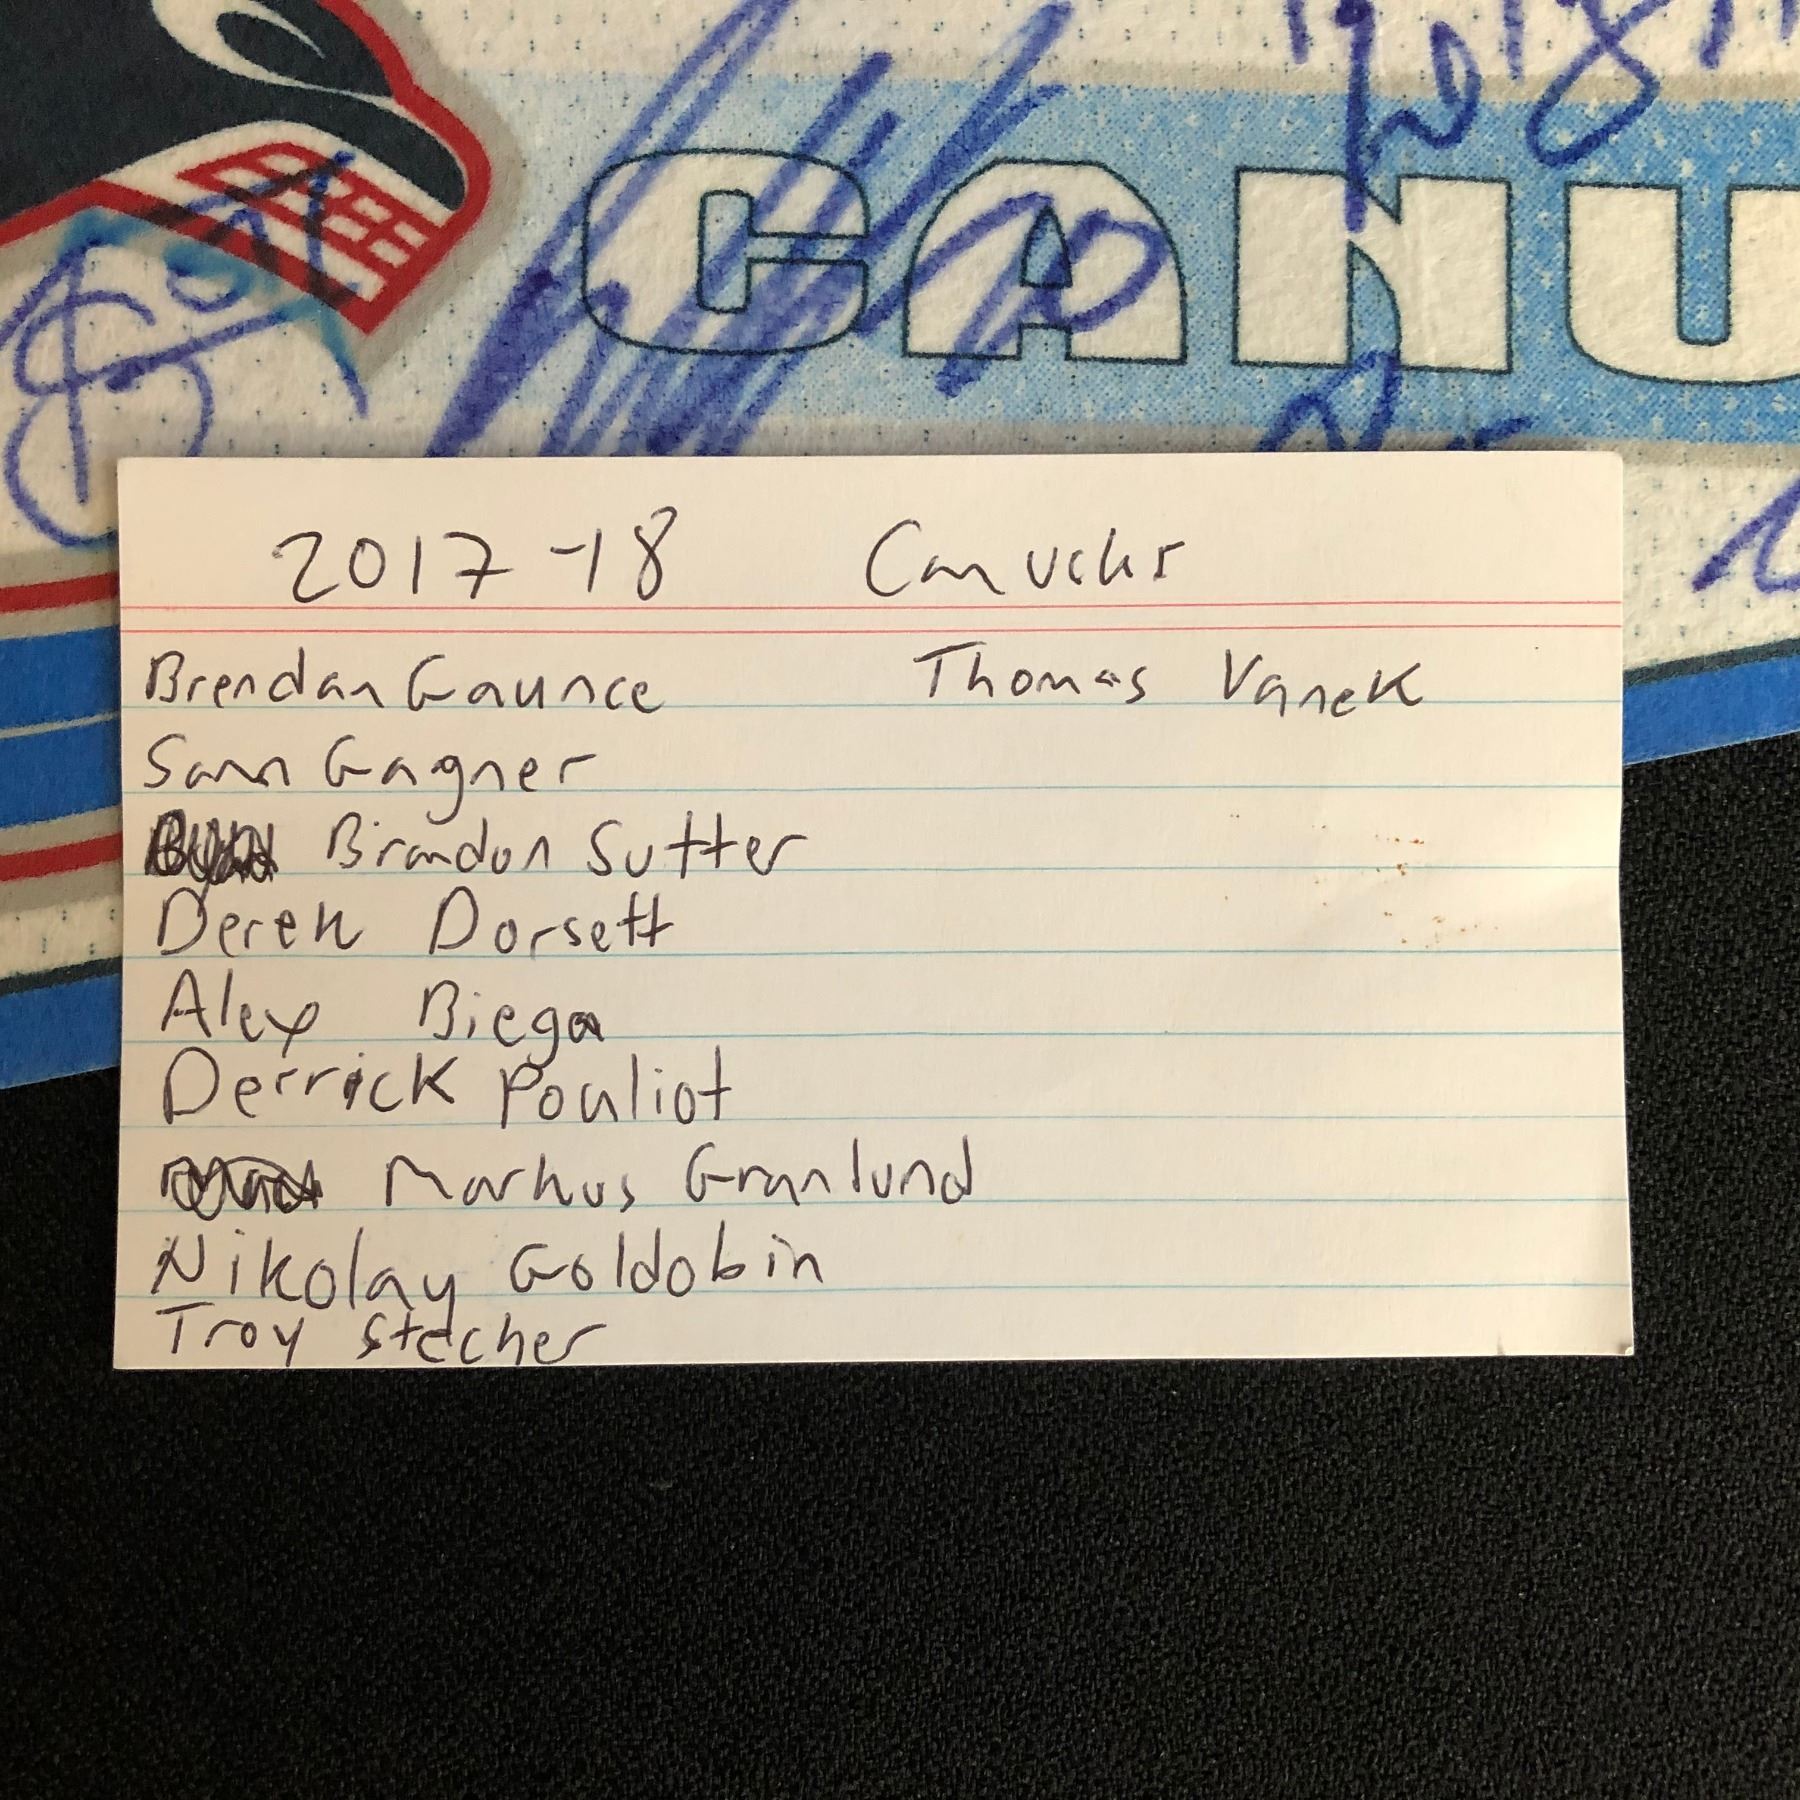 CANU
2017-18 Canucks
Brendan Gaunce Thomas Vanek
Sam Gagner
Brandon Sutter
Derek Dorsett
Alex Biega
Derrick Pouliot
Markus Granlund
Nikolay Goldobin
Troy Stecher